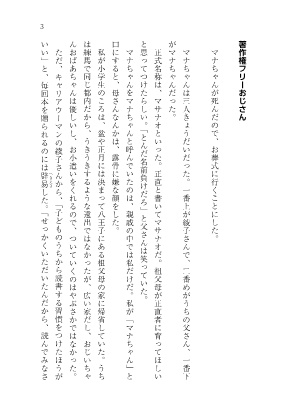 3
著作権フリーおじさん
マナちゃんが死んだので、お葬式に行くことにした。
マナちゃんは三人きょうだいだった。一番上が綾子さんで、二番めがうちの父さん、一番下
がマナちゃんだった。
正式名称は、マサナオといった。正直と書いてマサナオだ。祖父母が正直者に育ってほしい
と思ってつけたらしい。「とんだ名前負けだろ」と父さんは笑っていた。
マナちゃんをマナちゃんと呼んでいたのは、親戚の中では私だけだ。私が「マナちゃん」と
口にすると、母さんなんかは、露骨に嫌な顔をした。
私が小学生のころは、盆や正月には決まって八王子にある祖父母の家に帰省していた。うち
は練馬で同じ都内だから、うきうきするような遠出ではなかったが、広い家だし、おじいちゃ
んおばあちゃんは優しいし、お小遣いをくれるので、ついていくのはやぶさかではなかった。
ただ、キャリアウーマンの綾子さんから、「子どものうちから読書する習慣をつけたほうが
いい」と、毎回本を贈られるのには辟易した。「せっかくいただいたんだから、読んでみなさ